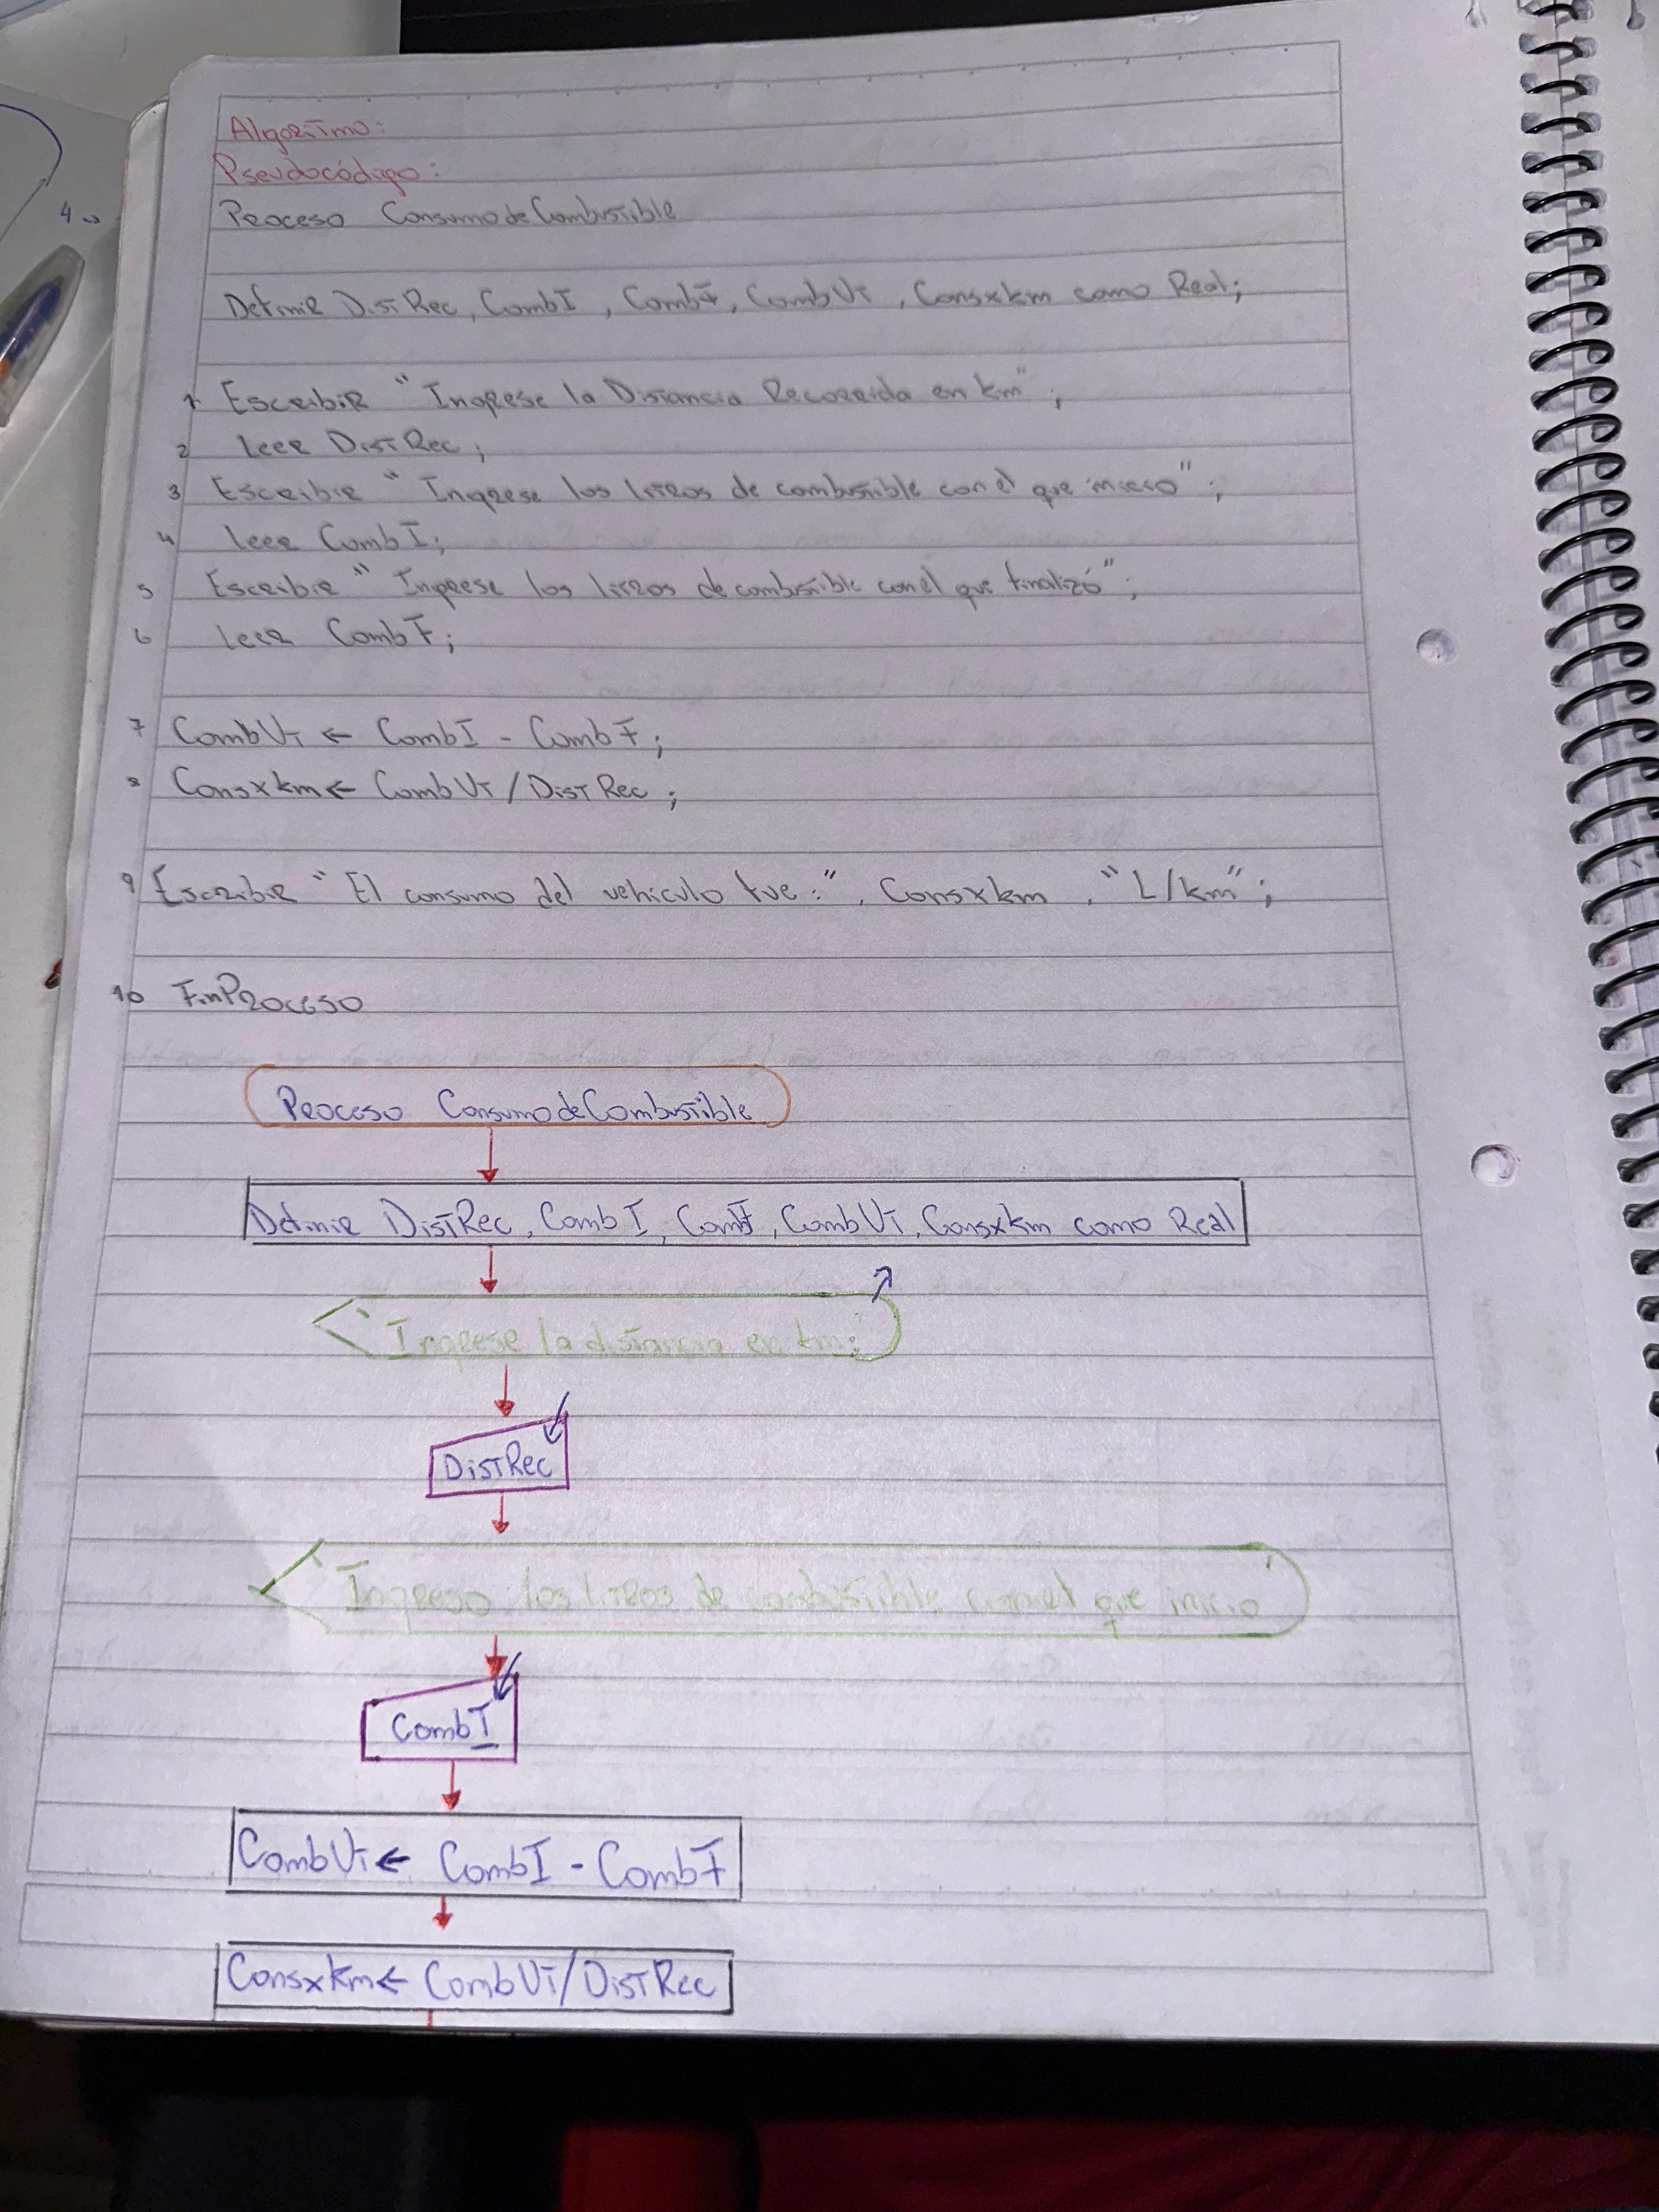 Algoritmo:
Pseudocódigo:
Proceso ConsumodeCombustible
Definir DistRec, CombI, CombF, CombUt, Consxkm como Real;
1 Escribir "Ingrese la Distancia Recorrida en km";
2 Leer DistRec;
3 Escribir "Ingrese los litros de combustible con el que inicio";
4 Leer CombI;
5 Escribir "Ingrese los litros de combustible con el que finalizó";
6 Leer CombF;
7 CombUt ← CombI - CombF;
8 Consxkm ← CombUt / DistRec;
9 Escribir "El consumo del vehiculo fue:", Consxkm, "L/km";
10 FinProceso
Proceso ConsumodeCombustible
Definir DistRec, CombI, CombF, CombUt, Consxkm como Real
"Ingrese la distancia en km:"
DistRec
Ingreso los litros de combustible con el que inicio
CombI
CombUt ← CombI - CombF
Consxkm ← CombUt/DistRec